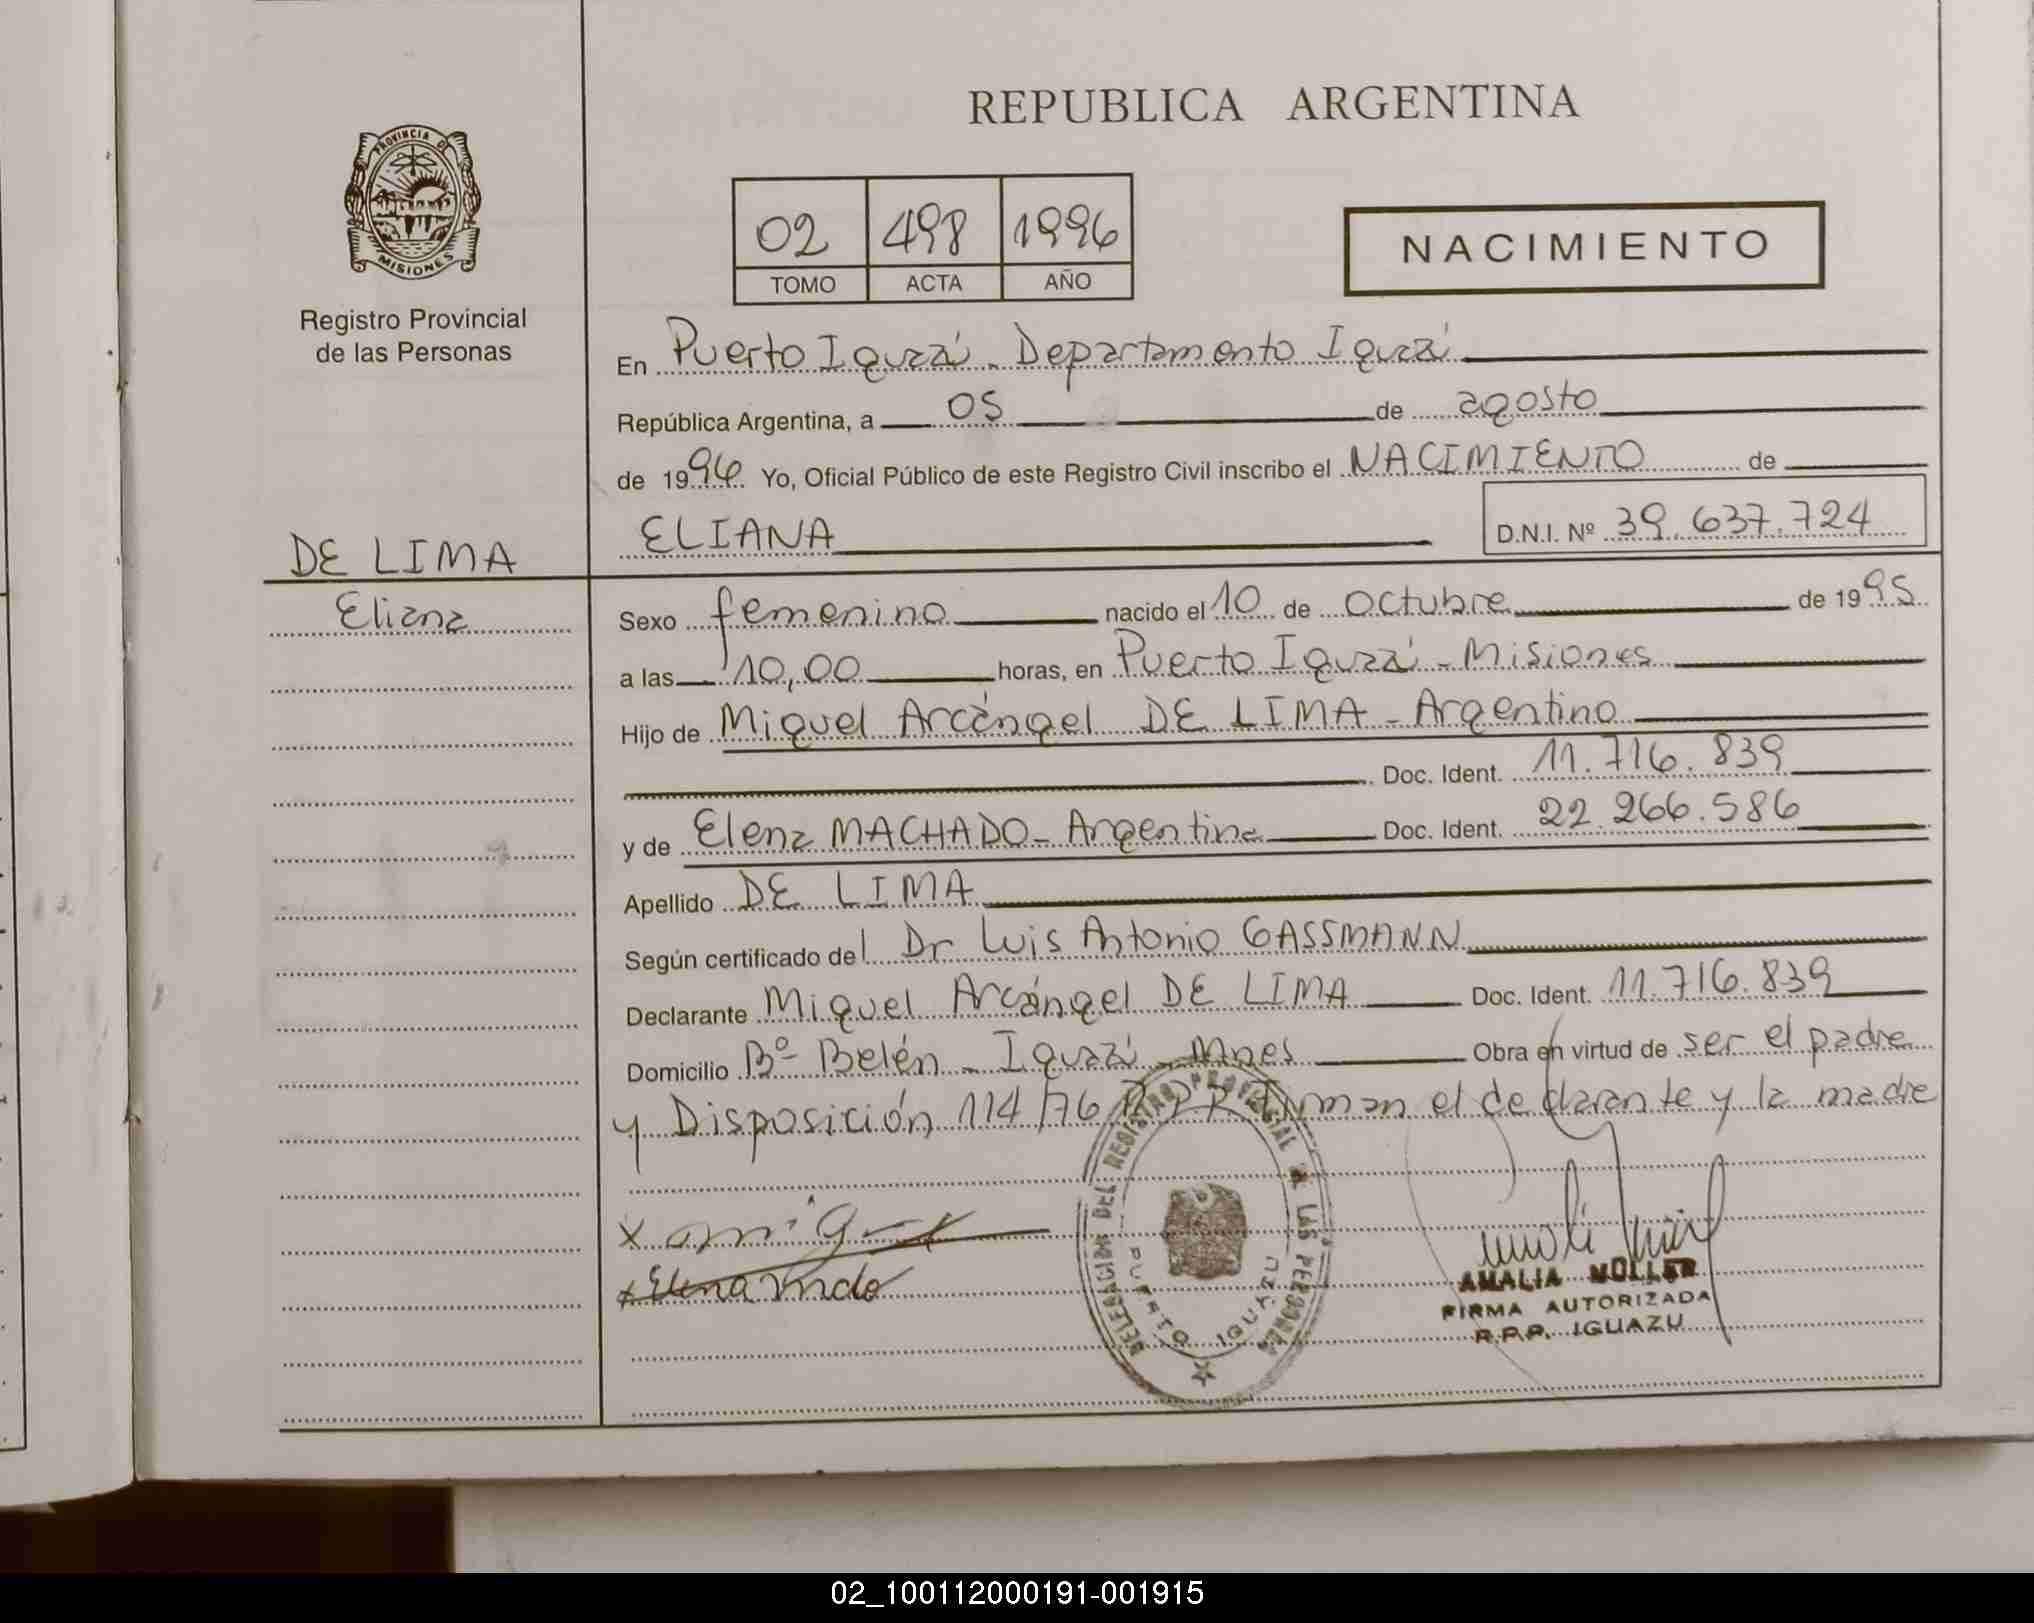 REPUBLICA ARGENTINA
PROVINCIA DE
MISIONES
Registro Provincial
de las Personas
02 498 1996
TOMO ACTA AÑO
NACIMIENTO
En Puerto Iguazú - Departamento Iguazú
República Argentina, a 05 de agosto
de 1996 Yo, Oficial Público de este Registro Civil inscribo el NACIMIENTO de
DE LIMA ELIANA D.N.I. Nº 39.637.724
Eliana Sexo femenino nacido el 10 de octubre de 1995
a las 10,00 horas, en Puerto Iguazú - Misiones
Hijo de Miguel Arcángel DE LIMA - Argentino
Doc. Ident. 11.716.839
y de Elena MACHADO - Argentina Doc. Ident. 22.266.586
Apellido DE LIMA
Según certificado del Dr Luis Antonio GASSMANN
Declarante Miguel Arcángel DE LIMA Doc. Ident. 11.716.839
Domicilio Bº Belén - Iguazú - Mnes Obra en virtud de ser el padre
y Disposición 114/76 R.P.P. Firman el declarante y la madre
DELEGACION DEL REGISTRO PROVINCIAL DE LAS PERSONAS
PUERTO IGUAZU
x
x Elena
AMALIA MOLLER
FIRMA AUTORIZADA
R.P.P. IGUAZU
02_100112000191-001915